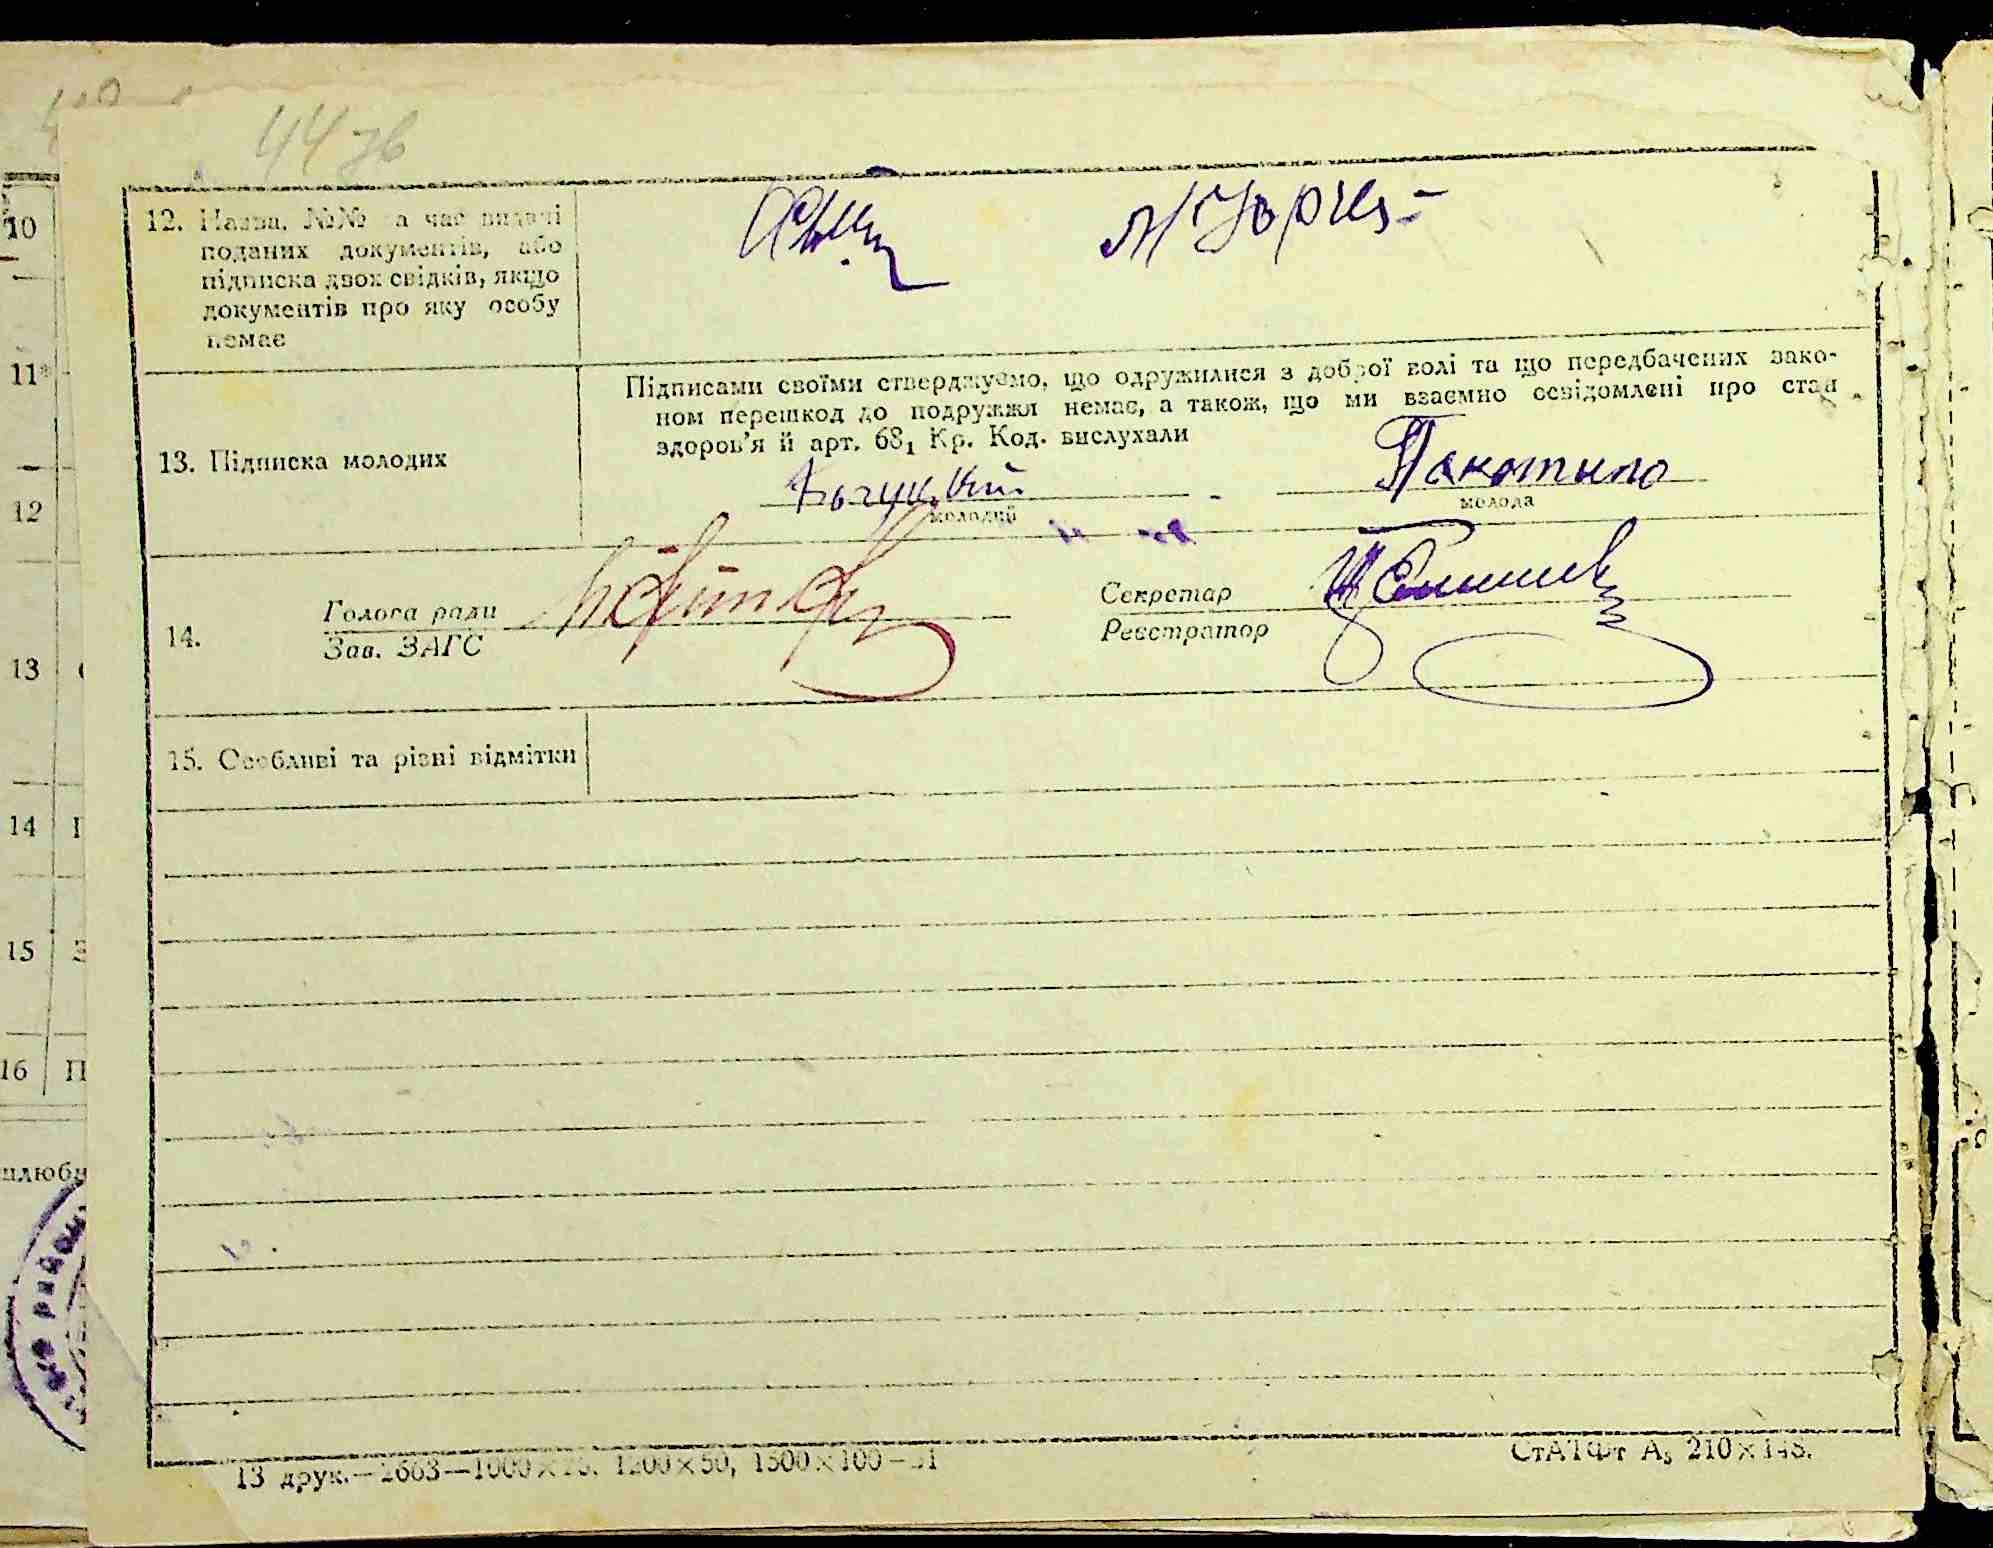 44 зв
12. Назва, №№ та час видачі
поданих документів, або
підписка двох свідків, якщо
документів про яку особу
немає
10
11
12
13
14
15
16
Підписами своїми стверджуємо, що одружилися з доброї волі та що передбачених зако-
ном перешкод до подружжя немає, а також, що ми взаємно освідомлені про стан
здоров'я й арт. 68₁ Кр. Код. вислухали
13. Підписка молодих
Пакотило
молодий
молода
14.
Голова ради
Зав. ЗАГС
Секретар
Реєстратор
15. Особливі та різні відмітки
13 друк.—2663—1000×75. 1200×50, 1500×100—31
СтАТФт А₅ 210×148.